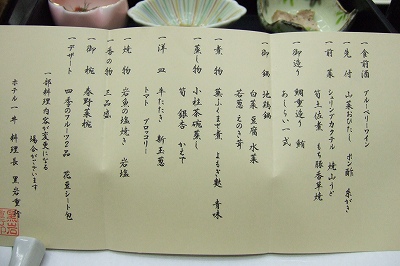 一 食前酒 ブルーベリーワイン
一 先付 山菜おひたし ポン酢 糸がき
一 前菜 シュリンプカクテル 焼山うど
筍土佐煮 もち豚香草焼
一 御造り 鯛重造り 鮪
あしらい一式
一 御鍋 地鶏鍋
白菜 豆腐 水菜
若葱 えのき茸
一 煮物 蕪ふくませ煮 よもぎ麩 青味
一 蒸し物 小柱茶碗蒸し
筍 銀杏 かまぼこ
一 洋皿 牛たたき 新玉葱
トマト ブロッコリー
一 焼物 岩魚の塩焼き 岩塩
一 香の物 三品盛
一 御椀 春野菜椀
一 デザート 四季のフルーツ2品 花豆シート包
一部料理内容が変更になる
場合がございます
ホテル一井 料理長 黒岩重